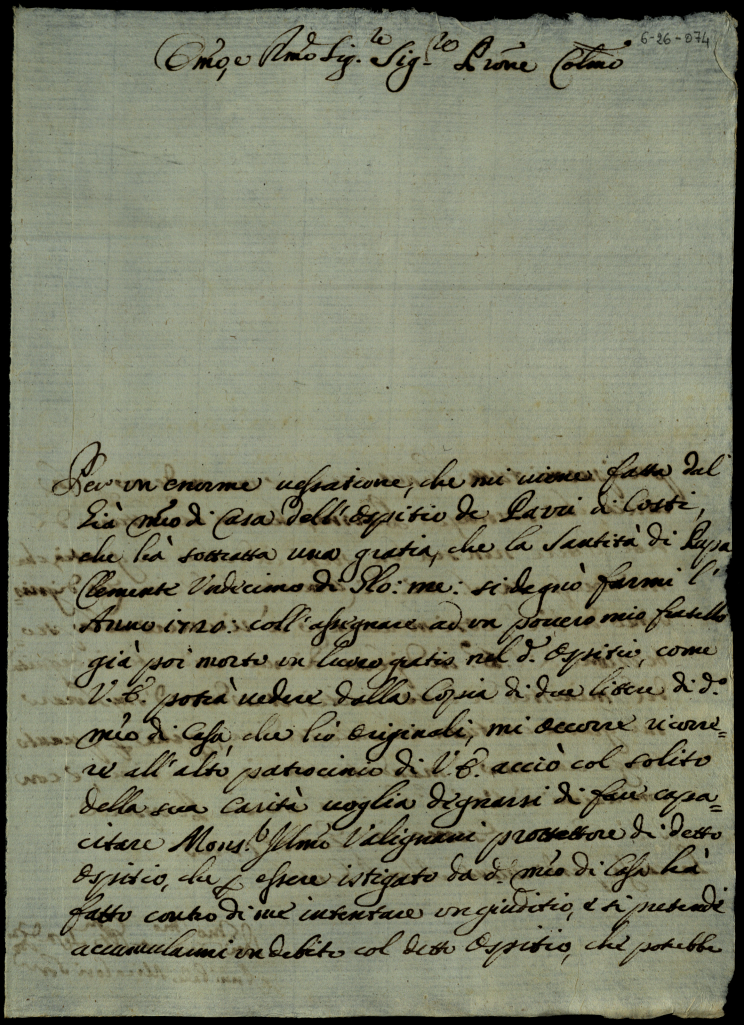 6-26-074
Emo, e Rmo Sig.re Sig.re Prone Colmo
Per un enorme vessatione, che mi viene fatta dal
Già mro di Casa dell'Ospitio de di Costì,
che hà sottratta una gratia, che la Santità di Papa
Clemente Undecimo di Glo: me: si degnò farmi l'
Anno 1720: coll'assegnare ad un povero mio fratello
già poi morto un luogo gratis nel d.o Ospitio, come
V. E. potrà vedere dalla Copia di due lettere di d.o
mro di Casa che hò Originali, mi occorre ricorre=
re all'alto patrocinio di V. E. acciò col solito
della sua Carità voglia degnarsi di fare capa=
citare Mons.r Illmo Valignani protettore di detto
Ospitio, che p essere istigato da d.o mro di Casa hà
fatto contro di me intentare un giuditio, e si pretende
accumularmi un debito col detto Ospitio, che potrebbe